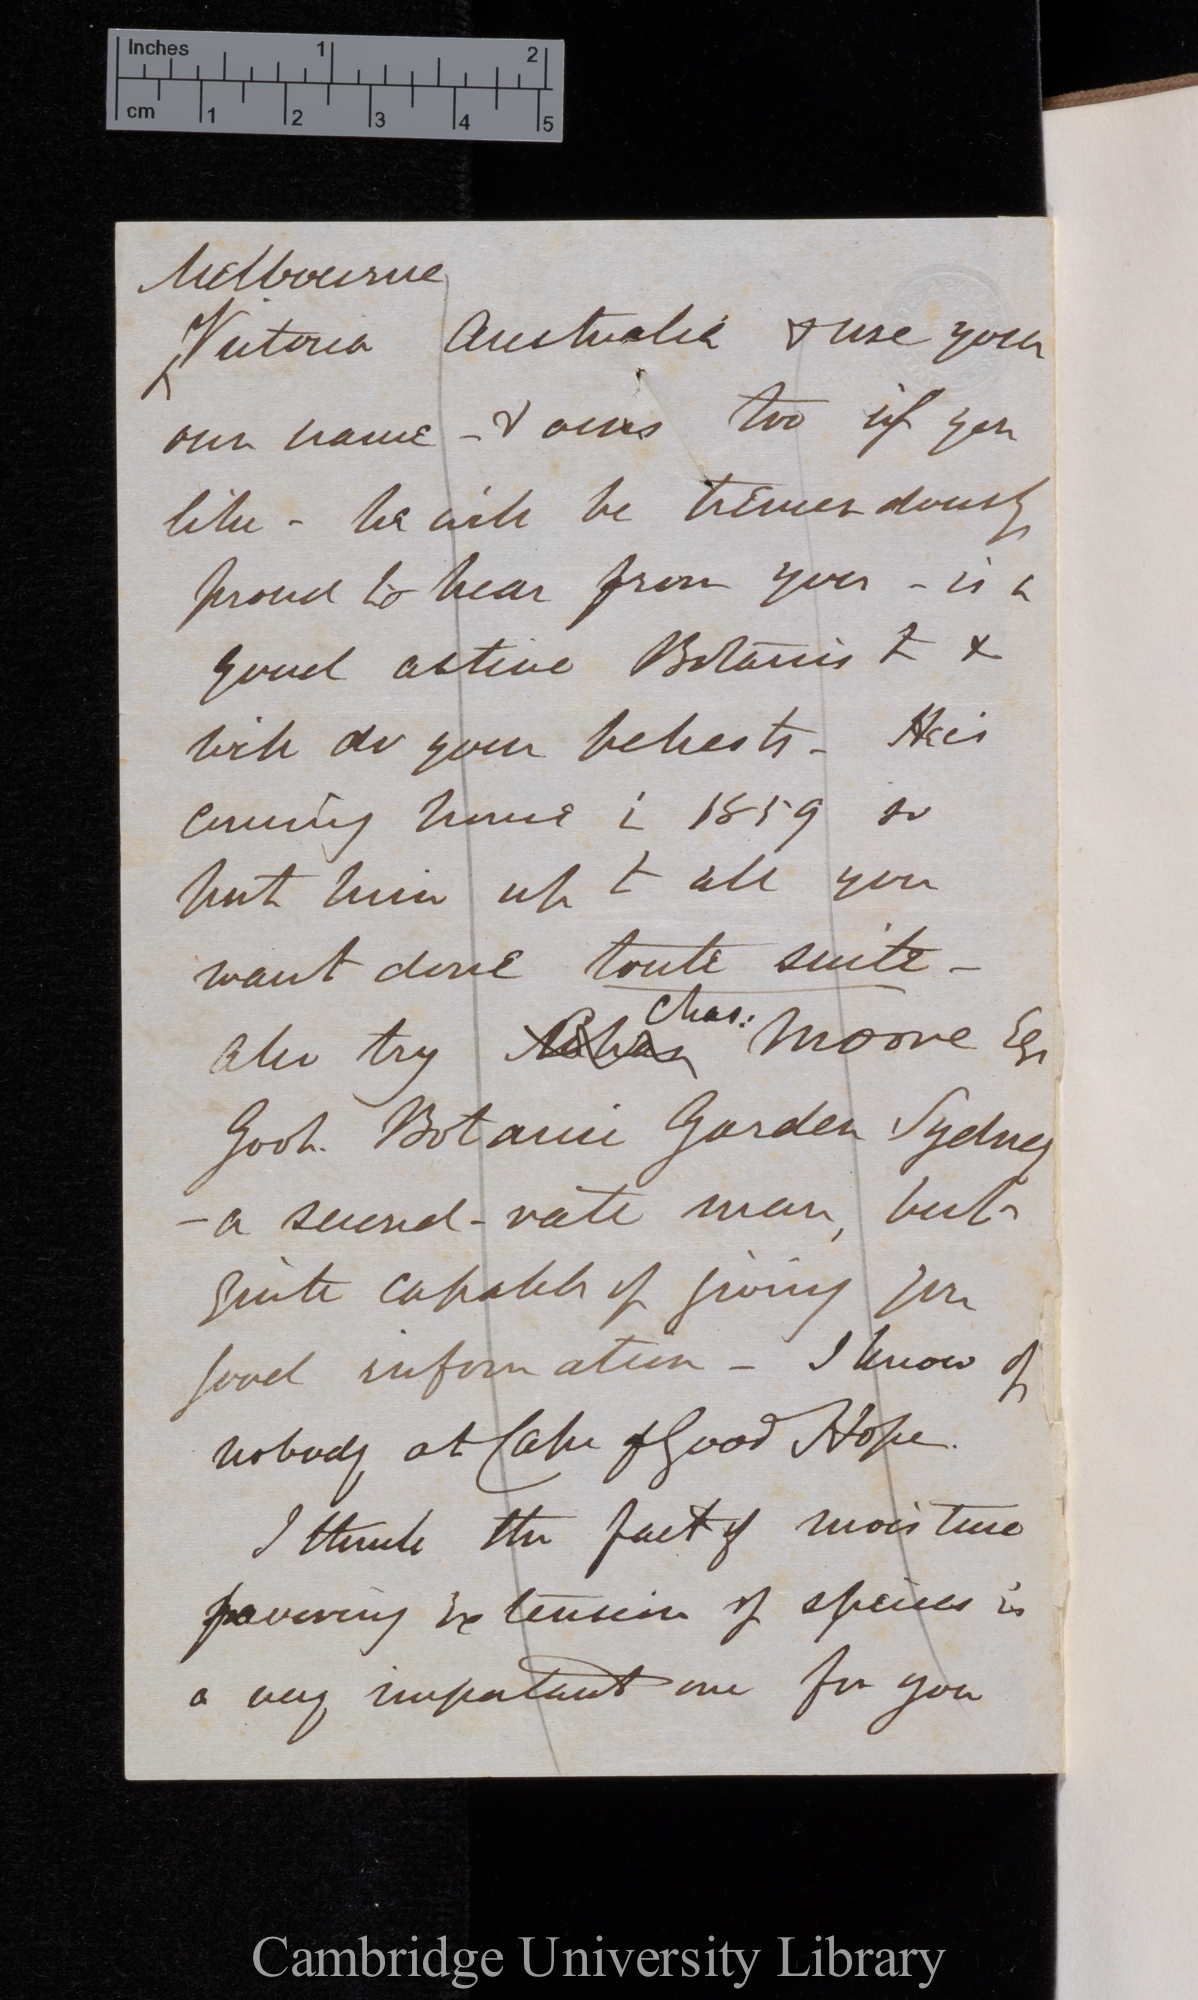 Inches 1 2
cm 1 2 3 4 5
Melbourne
Victoria Australia & use your
own name – & ours too if you
like – he will be tremendously
proud to hear from you – is a
good active Botanist &
will do your behests – He is
coming home i 1859 so
put him up t all you
want done toute suite –
Chas:
also try Moore Esq
Govt. Botanic Garden Sydney
– a second-rate man, but
quite capable of giving you
good information – I know of
nobody at Cape of Good Hope.
I think the fact of moisture
favoring extension of species is
a very important one for you
Cambridge University Library